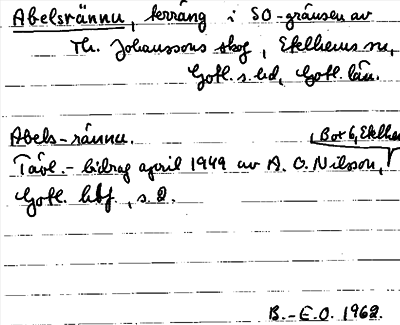 Abelsrännu, terräng i SO-gränsen av
Th. Johanssons skog, Etelhems sn,
Gotl. s. hd, Gotl. län.
Abels-rännu.
(Box 6, Etelhem
Tävl.-bidrag april 1949 av A. O. Nilsson,
Gotl. hbf, s. 2.
B.-E.O. 1962.